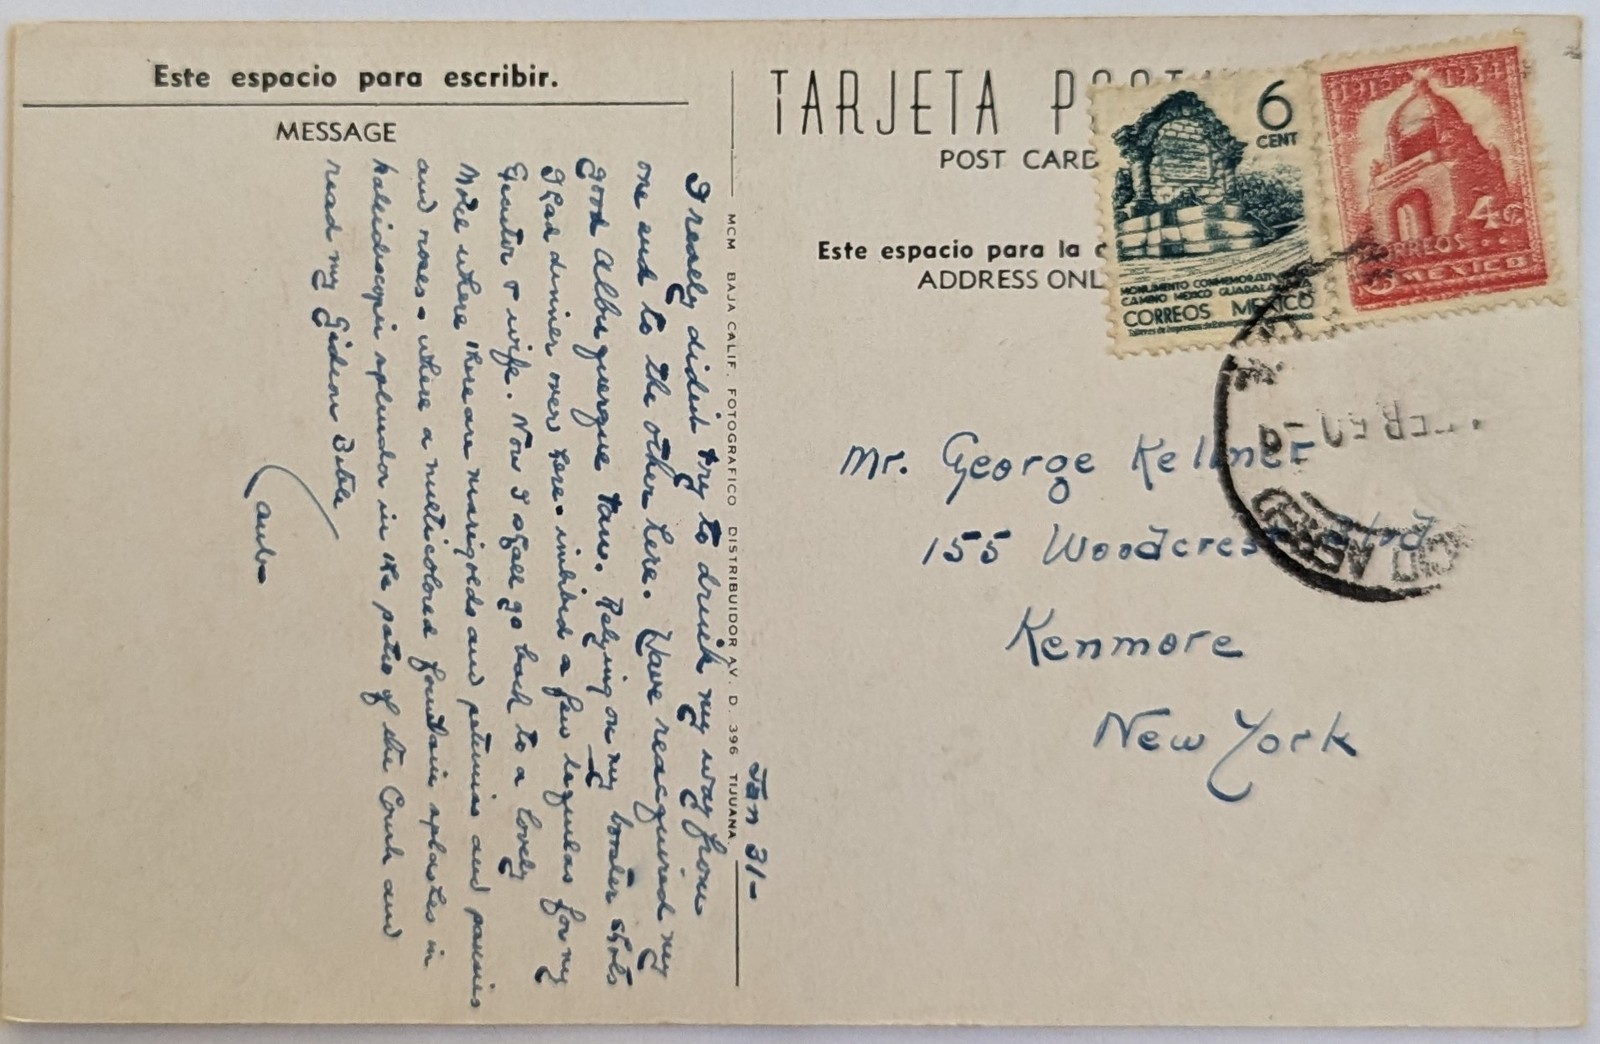 Este espacio para escribir.
MESSAGE
Jan 31-
I really didn't try to drink my way from
one end to the other here. Have reacquired my
good Albuquerque tan. Relying on my booster shots
I had dinner over here - imbibed a few tequilas for my
& wife. Now I shall go back to a lovely
where there are marigolds and petunias and pansies
and roses - where a multicolored fountain splashes in
kaleidoscopic splendor in the patio of the and
read my Gideon Bible
MCM BAJA CALIF. FOTOGRAFICO DISTRIBUIDOR AV. D. 396 TIJUANA.
TARJETA
POST CARD
Este espacio para la
ADDRESS ONL
6
CENT
MONUMENTO CONMEMORATIVO
CAMINO MEXICO GUADALAJARA
CORREOS MEXICO
1910 1934
4¢
CORREOS
MEXICO
Mr. George Kellner
155 Woodcrest Blvd
Kenmore
New York